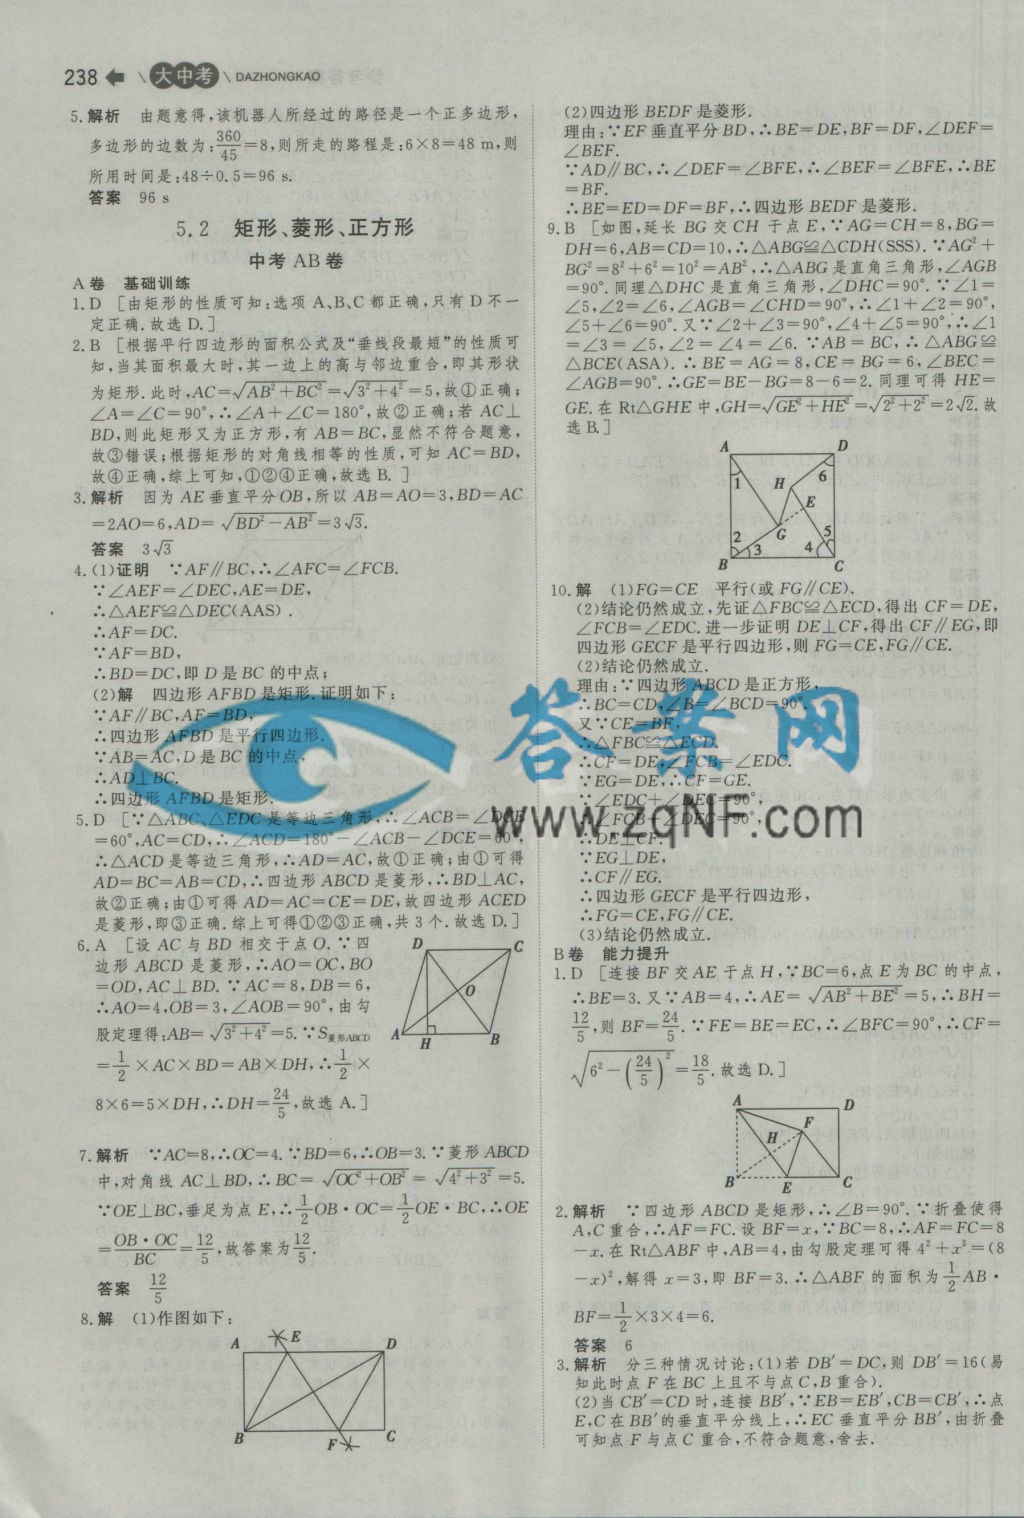 238 大中考 DAZHONGKAO
5.解析 由题意得,该机器人所经过的路径是一个正多边形,
多边形的边数为:360/45=8,则所走的路程是:6×8=48 m,则
所用时间是:48÷0.5=96 s.
答案 96 s
5.2 矩形、菱形、正方形
中考 AB 卷
A 卷 基础训练
1.D [由矩形的性质可知:选项 A、B、C 都正确,只有 D 不一
定正确.故选 D.]
2.B [根据平行四边形的面积公式及“垂线段最短”的性质可
知,当其面积最大时,其一边上的高与邻边重合,即其形状
为矩形.此时,AC=√(AB²+BC²)=√(3²+4²)=5,故①正确;
∠A=∠C=90°,∴∠A+∠C=180°,故②正确;若 AC⊥
BD,则此矩形又为正方形,有 AB=BC,显然不符合题意,
故③错误;根据矩形的对角线相等的性质,可知 AC=BD,
故④正确,综上可知,①②④正确,故选 B. ]
3.解析 因为 AE 垂直平分 OB,所以 AB=AO=3,BD=AC
=2AO=6,AD=√(BD²-AB²)=3√3.
答案 3√3
4.(1)证明 ∵AF∥BC,∴∠AFC=∠FCB.
∵∠AEF=∠DEC,AE=DE,
∴△AEF≌△DEC(AAS).
∴AF=DC.
∵AF=BD,
∴BD=DC,即 D 是 BC 的中点;
(2)解 四边形 AFBD 是矩形.证明如下:
∵AF∥BC,AF=BD,
∴四边形 AFBD 是平行四边形.
∵AB=AC,D 是 BC 的中点,
∴AD⊥BC.
∴四边形 AFBD 是矩形.
5.D [∵△ABC、△EDC 是等边三角形,∴∠ACB=∠DCE
=60°,AC=CD,∴∠ACD=180°-∠ACB-∠DCE=60°,
∴△ACD 是等边三角形,∴AD=AC,故①正确;由①可得
AD=BC=AB=CD,∴四边形 ABCD 是菱形,∴BD⊥AC,
故②正确;由①可得 AD=AC=CE=DE,故四边形 ACED
是菱形,即③正确.综上可得①②③正确,共 3 个.故选 D.]
6.A [设 AC 与 BD 相交于点 O.∵四
边形 ABCD 是菱形,∴AO=OC,BO
=OD,AC⊥BD.∵AC=8,DB=6,
∴AO=4,OB=3,∠AOB=90°,由勾
股定理得:AB=√(3²+4²)=5.∵S菱形ABCD
=1/2×AC×BD=AB×DH,∴1/2×
8×6=5×DH,∴DH=24/5,故选 A.]
D C
O
A H B
7.解析 ∵AC=8,∴OC=4.∵BD=6,∴OB=3.∵菱形 ABCD
中,对角线 AC⊥BD,∴BC=√(OC²+OB²)=√(4²+3²)=5.
∵OE⊥BC,垂足为点 E,∴1/2OB·OC=1/2OE·BC,∴OE
=OB·OC/BC=12/5,故答案为12/5.
答案 12/5
8.解 (1)作图如下:
A E D
B F C
(2)四边形 BEDF 是菱形.
理由:∵EF 垂直平分 BD,∴BE=DE,BF=DF,∠DEF=
∠BEF.
∵AD∥BC,∴∠DEF=∠BFE,∴∠BEF=∠BFE,∴BE
=BF.
∴BE=ED=DF=BF,∴四边形 BEDF 是菱形.
9.B [如图,延长 BG 交 CH 于点 E,∵AG=CH=8,BG=
DH=6,AB=CD=10,∴△ABG≌△CDH(SSS).∵AG²+
BG²=8²+6²=10²=AB²,∴△ABG 是直角三角形,∠AGB
=90°.同理△DHC 是直角三角形,∠DHC=90°.∵∠1=
∠5,∠2=∠6,∠AGB=∠CHD=90°,∴∠1+∠2=90°,
∠5+∠6=90°.又∵∠2+∠3=90°,∠4+∠5=90°,∴∠1
=∠3=∠5,∠2=∠4=∠6.∵AB=BC,∴△ABG≌
△BCE(ASA).∴BE=AG=8,CE=BG=6,∠BEC=
∠AGB=90°.∴GE=BE-BG=8-6=2.同理可得 HE=
GE.在 Rt△GHE 中,GH=√(GE²+HE²)=√(2²+2²)=2√2.故
选 B.]
A D
1 H 6
E
2 G 5
B 3 4 C
10.解 (1)FG=CE 平行(或 FG∥CE).
(2)结论仍然成立,先证△FBC≌△ECD,得出 CF=DE,
∠FCB=∠EDC.进一步证明 DE⊥CF,得出 CF∥EG,即
四边形 GECF 是平行四边形,则 FG=CE,FG∥CE.
(2)结论仍然成立.
理由:∵四边形 ABCD 是正方形,
∴BC=CD,∠B=∠BCD=90°.
又∵CE=BF,
∴△FBC≌△ECD.
∴CF=DE,∠FCB=∠EDC.
∵EG=DE,∴CF=GE.
∵∠EDC+∠DEC=90°,
∴∠FCB+∠DEC=90°,
∴DE⊥CF.
∵EG⊥DE,
∴CF∥EG.
∴四边形 GECF 是平行四边形,
∴FG=CE,FG∥CE.
(3)结论仍然成立.
B 卷 能力提升
1.D [连接 BF 交 AE 于点 H,∵BC=6,点 E 为 BC 的中点,
∴BE=3.又∵AB=4,∴AE=√(AB²+BE²)=5,∴BH=
12/5,则 BF=24/5.∵FE=BE=EC,∴∠BFC=90°,∴CF=
√(6²-(24/5)²)=18/5.故选 D.]
A D
F
H
B E C
2.解析 ∵四边形 ABCD 是矩形,∴∠B=90°.∵折叠使得
A,C 重合,∴AF=FC.设 BF=x,∵BC=8,∴AF=FC=8
-x.在 Rt△ABF 中,AB=4,由勾股定理可得 4²+x²=(8
-x)²,解得 x=3,即 BF=3.∴△ABF 的面积为1/2AB·
BF=1/2×3×4=6.
答案 6
3.解析 分三种情况讨论:(1)若 DB′=DC,则 DB′=16(易
知此时点 F 在 BC 上且不与点 C,B 重合).
(2)当 CB′=CD 时,连接 BB′,∵EB=EB′,CB=CB′,∴点
E,C 在 BB′的垂直平分线上,∴EC 垂直平分 BB′,由折叠
可知点 F 与点 C 重合,不符合题意,舍去.
答案网
www.zqNF.com